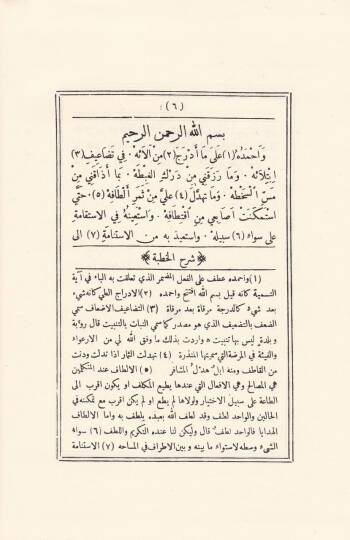 (٦)
بسم الله الرحمن الرحيم
وَأَحْمَدُهُ (١) عَلَى مَا أَدْرَجَ (٢) مِنْ آلَائِهْ ۰ فِي تَضَاعِيفِ (٣)
ابْتِلَائِهْ ۰ وَمَا رَزَقَنِي مِنْ دَرْكِ الغِبْطَهْ ۰ بِمَا أَذَاقَنِي مِنْ
مَسِّ السَّخْطَهْ ۰ وَمَا تَهَدَّلَ (٤) عَلَيَّ مِنْ ثَمَرِ أَلْطَافِهْ (٥) ۰ حَتَّى
اسْتَمْكَنَتْ أَصَابِعِي مِنِ اقْتِطَافِهْ ۰ وَأَسْتَعِينُهُ فِي الاستقامةِ
على سواء (٦) سبيلِهْ ۰ واستعيذ به من الاستنامَةِ (٧) الى
﴿ شرح الخطبة ﴾
(١) واحمده عطف على الفعل المضمر الذي تعلقت به الباء في آية
التسمية كانه قيل بسم الله افتتح واحمده (٢) الادراج الطي كانه شيء
بعد شيء كالدرجة مرقاة بعد مرقاة (٣) التضاعيف الاضعاف سمي
الضعف بالتضعيف الذي هو مصدر كما سمي النبات بالتنبيت قال رؤبة
وبلدة ليس بها تنبيت ۰ واردت بذلك ما وفق الله لي من الارعواء
والفيئة في المرضة التي سميتها المنذرة (٤) تهدلت الثمار اذا تدلت ودنت
من القاطف ومنه ابل هدل المشافر (٥) الالطاف عند المتكلمين
هي المصالح وهي الافعال التي عندها يطيع المكلف او يكون اقرب الى
الطاعة على سبيل الاختيار ولولاها لم يطع او لم يكن اقرب مع تمكنه في
الحالين والواحد لطف وقد لطف الله بعبده يلطف به واما الالطاف
الهدايا فالواحد لطف قال وليكن لنا عنده التكريم واللطف (٦) سواء
الشيء وسطه لاستواء ما بينه وبين الاطراف في المساحه (٧) الاستنامة